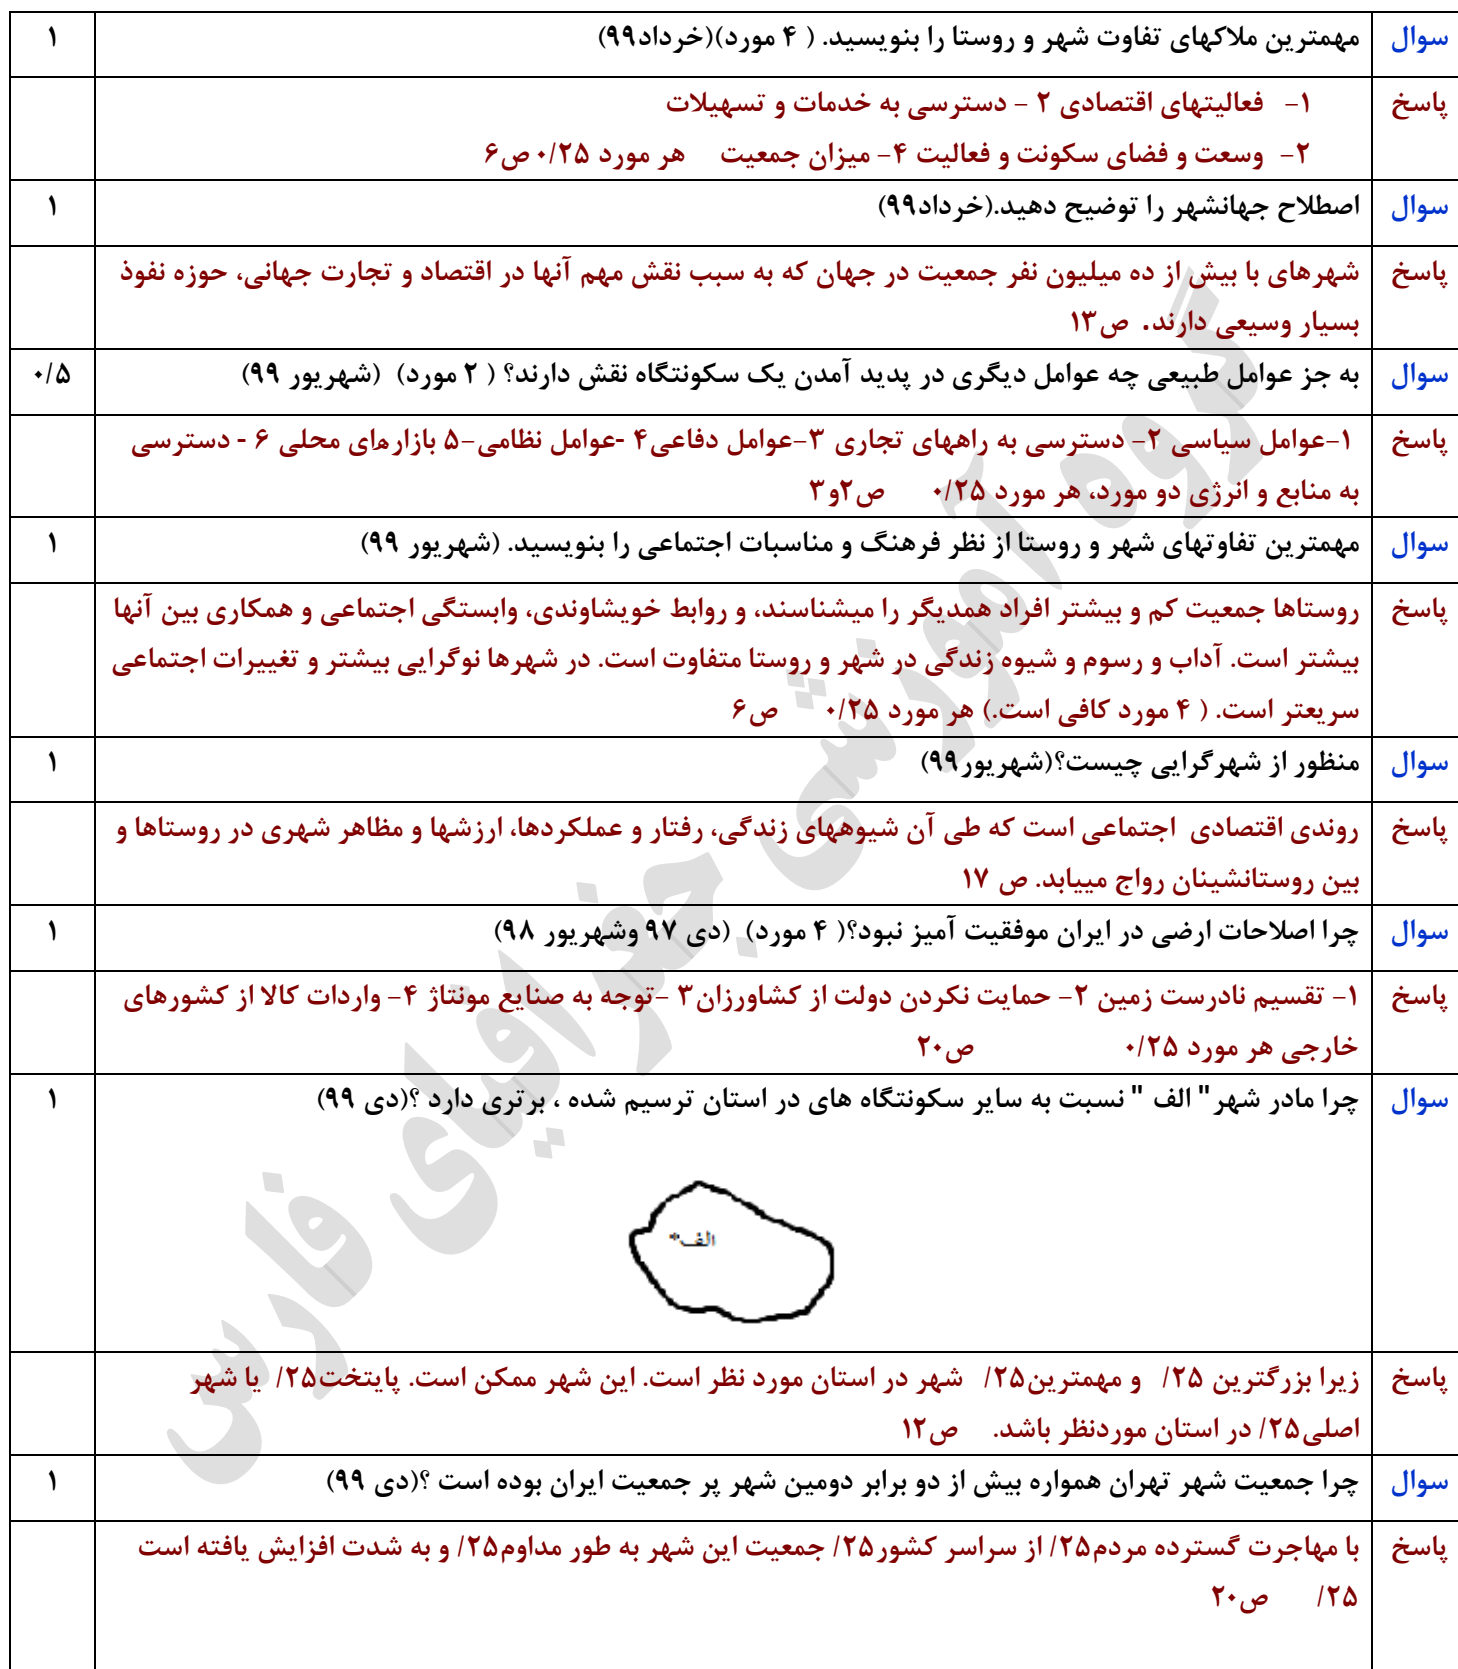 سوال مهمترین ملاکهای تفاوت شهر و روستا را بنویسید. ( ۴ مورد)(خرداد۹۹) ۱
پاسخ ۱- فعالیتهای اقتصادی ۲ - دسترسی به خدمات و تسهیلات
۲- وسعت و فضای سکونت و فعالیت ۴- میزان جمعیت هر مورد ۰/۲۵ ص۶
سوال اصطلاح جهانشهر را توضیح دهید.(خرداد۹۹) ۱
پاسخ شهرهای با بیش از ده میلیون نفر جمعیت در جهان که به سبب نقش مهم آنها در اقتصاد و تجارت جهانی، حوزه نفوذ
بسیار وسیعی دارند. ص۱۳
سوال به جز عوامل طبیعی چه عوامل دیگری در پدید آمدن یک سکونتگاه نقش دارند؟ ( ۲ مورد) (شهریور ۹۹) ۰/۵
پاسخ ۱-عوامل سیاسی ۲- دسترسی به راههای تجاری ۳-عوامل دفاعی۴ -عوامل نظامی-۵ بازارهای محلی ۶ - دسترسی
به منابع و انرژی دو مورد، هر مورد ۰/۲۵ ص۲و۳
سوال مهمترین تفاوتهای شهر و روستا از نظر فرهنگ و مناسبات اجتماعی را بنویسید. (شهریور ۹۹) ۱
پاسخ روستاها جمعیت کم و بیشتر افراد همدیگر را میشناسند، و روابط خویشاوندی، وابستگی اجتماعی و همکاری بین آنها
بیشتر است. آداب و رسوم و شیوه زندگی در شهر و روستا متفاوت است. در شهرها نوگرایی بیشتر و تغییرات اجتماعی
سریعتر است. ( ۴ مورد کافی است.) هر مورد ۰/۲۵ ص۶
سوال منظور از شهرگرایی چیست؟(شهریور۹۹) ۱
پاسخ روندی اقتصادی اجتماعی است که طی آن شیوههای زندگی، رفتار و عملکردها، ارزشها و مظاهر شهری در روستاها و
بین روستانشینان رواج مییابد. ص ۱۷
سوال چرا اصلاحات ارضی در ایران موفقیت آمیز نبود؟( ۴ مورد) (دی ۹۷ وشهریور ۹۸) ۱
پاسخ ۱- تقسیم نادرست زمین ۲- حمایت نکردن دولت از کشاورزان۳ -توجه به صنایع مونتاژ ۴- واردات کالا از کشورهای
خارجی هر مورد ۰/۲۵ ص۲۰
سوال چرا مادر شهر" الف " نسبت به سایر سکونتگاه های در استان ترسیم شده ، برتری دارد ؟(دی ۹۹) ۱
الف*
پاسخ زیرا بزرگترین ۲۵/ و مهمترین۲۵/ شهر در استان مورد نظر است. این شهر ممکن است. پایتخت۲۵/ یا شهر
اصلی۲۵/ در استان موردنظر باشد. ص۱۲
سوال چرا جمعیت شهر تهران همواره بیش از دو برابر دومین شهر پر جمعیت ایران بوده است ؟(دی ۹۹) ۱
پاسخ با مهاجرت گسترده مردم۲۵/ از سراسر کشور۲۵/ جمعیت این شهر به طور مداوم۲۵/ و به شدت افزایش یافته است
۲۵/ ص۲۰
گروه آموزشی جغرافیای فارس